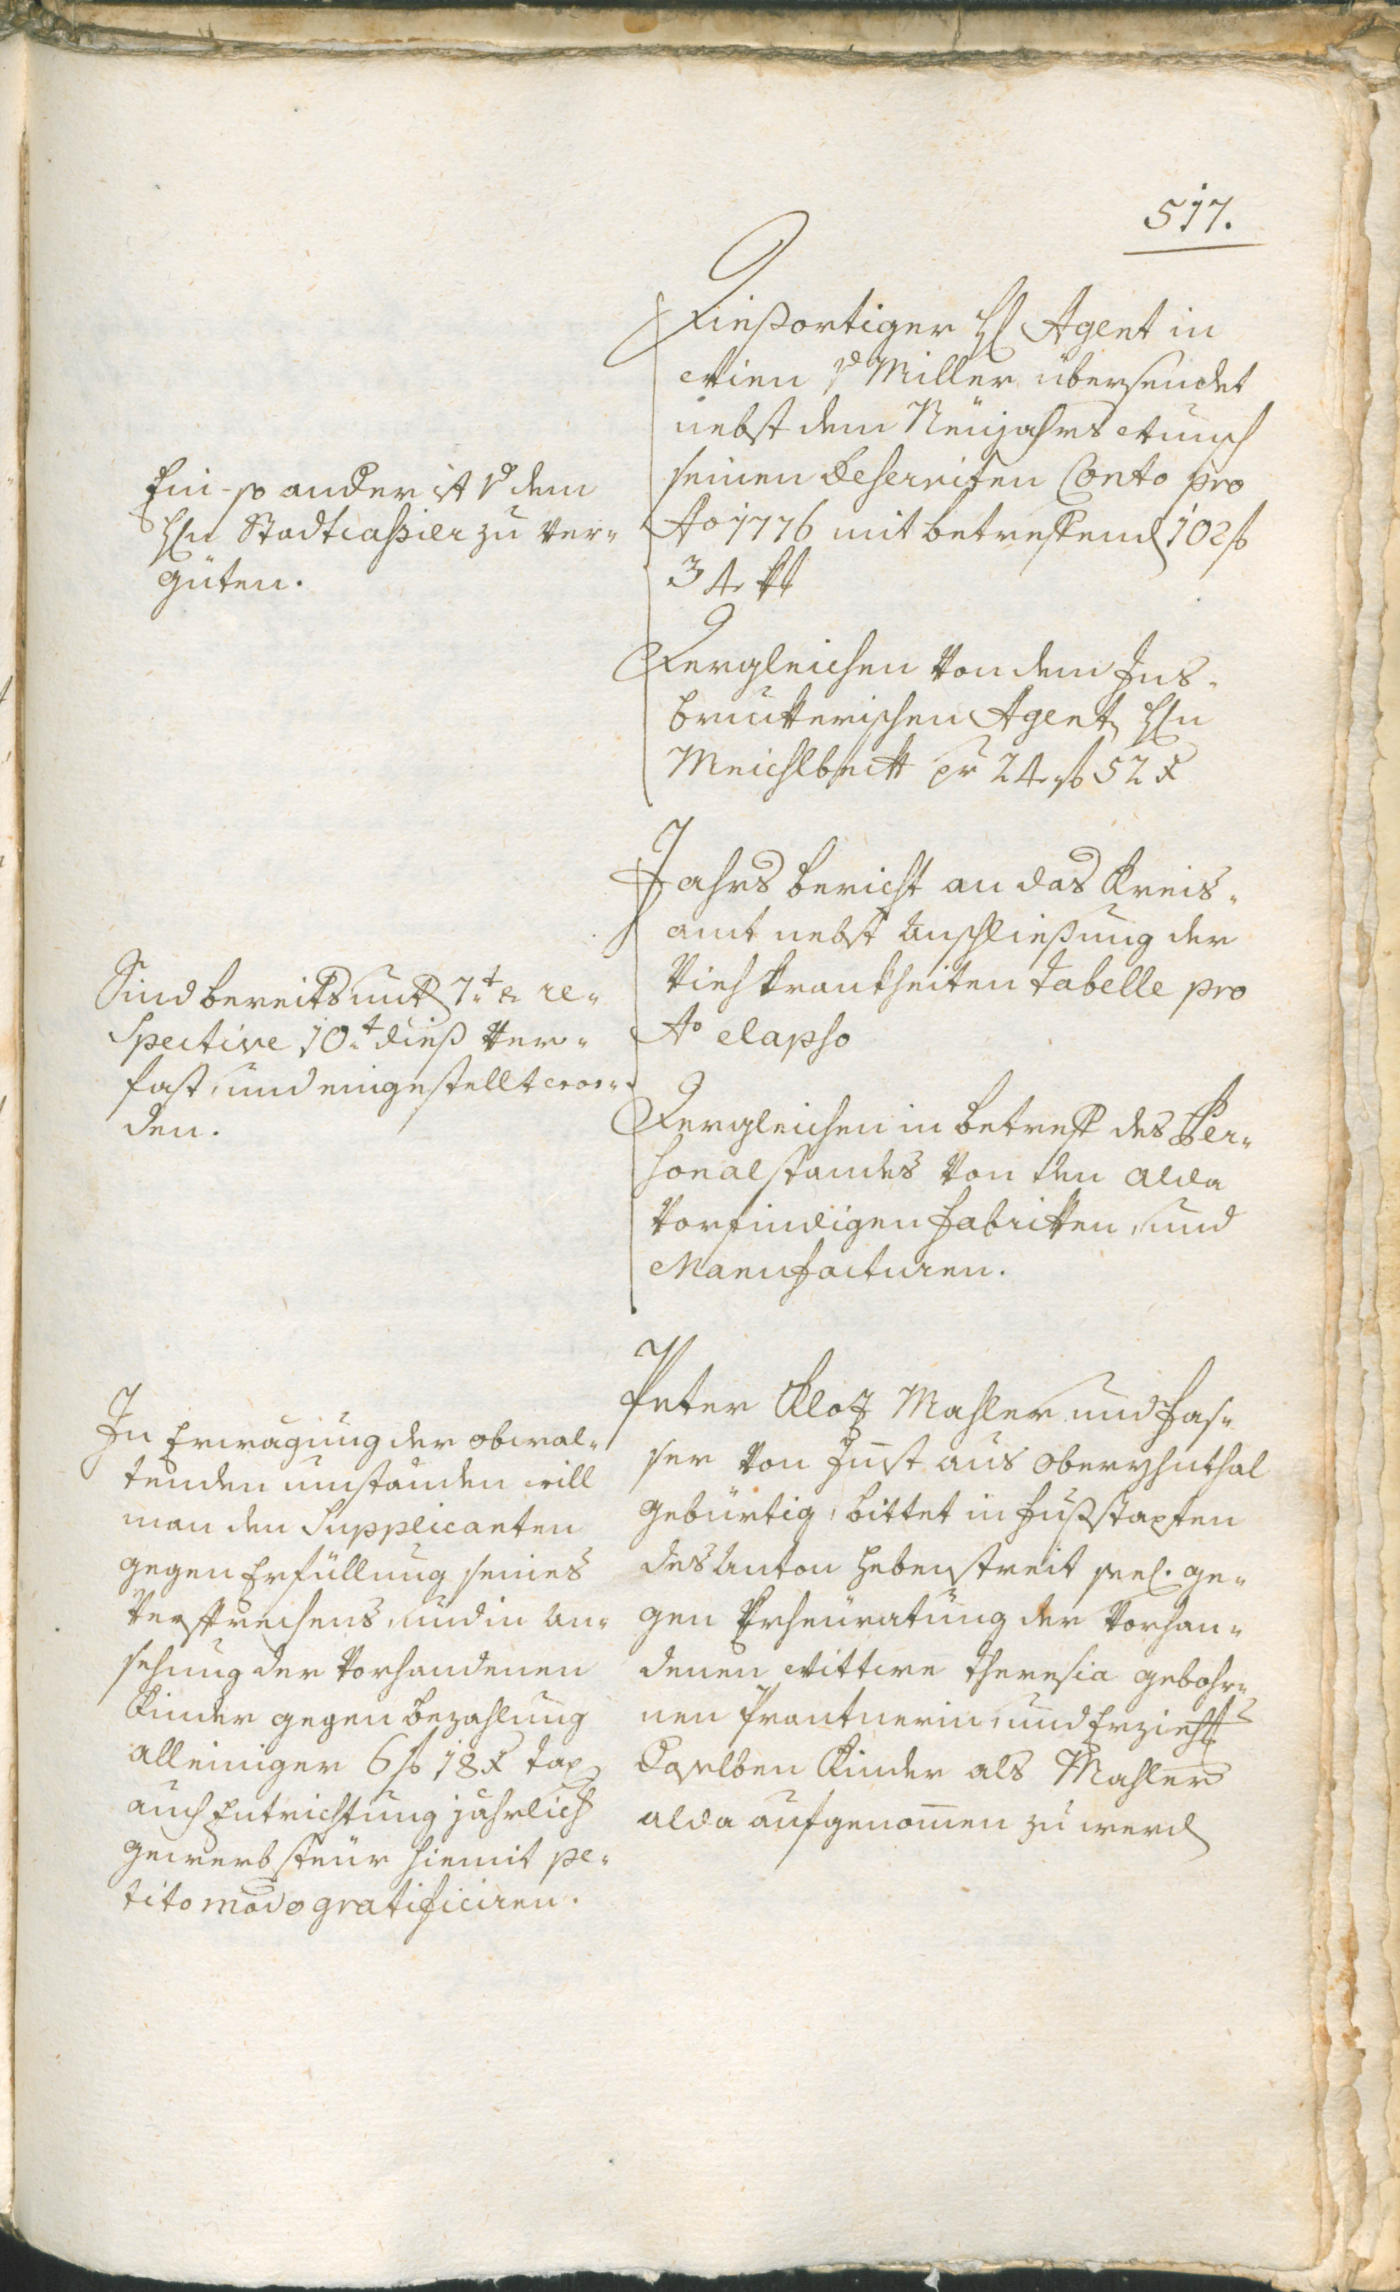 517.
Dießortiger H Agent in
Wien v Miller übersendet
nebst dem Neüjahrs Wunsch
seinen Deserviten Conto pro
Ao 1776 mit betreffend 102 f
34 kr
Ein- so ander ist v dem
Hrn Stadtcassier zu ver-
güten.
Dergleichen von dem Ins-
bruckerischen Agent Hrn
Meichlbeck pr 24 f 52 x
Jahrs bericht an das Kreis-
amt nebst Anschließung der
Viehkrankheiten tabelle pro
Ao elapso
Sind bereits unterm 7t & re-
spective 10t dieß ver-
fast, und eingestellt wor-
den.
Dergleichen in betreff des Per-
sonalstandes von den alda
vorfindigen Fabriken, und
Manufacturen.
Peter Kloz Mahler und Fas-
ser von Imst aus Oberyhnthal
gebürtig, bittet in Fußstapfen
des Anton Hebenstreit seel. ge-
gen Erheüratung der vorhan-
denen Wittwe Theresia gebohr-
nen Prantnerin, und Erziehung
Deroselben Kinder als Mahler
alda aufgenomen zu werd
In Erwägung der obwal-
tenden umständen will
man den Supplicanten
gegen Erfüllung seines
Versprechens, und in An-
sehung der vorhandenen
Kinder gegen bezahlung
alleiniger 6 f 18 x tax
auch Entrichtung jährlich
gewerb steür hiemit pe-
tito modo gratificiren.